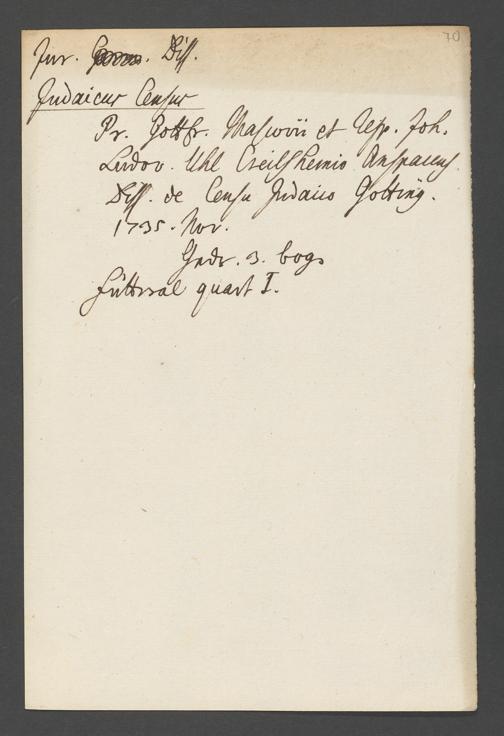 70
Jur. Diss.
Judaicus Census
Pr. Gottfr. Mascovii et Resp. Joh.
Ludov. Uhl Creilshemio Anspacens.
Diss. de Censu Judaico Gotting.
1735. Nov.
Gedr. 3. bog.
quart I.